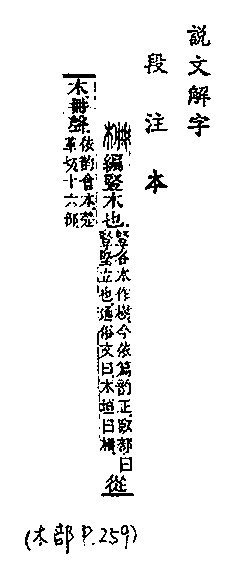 說文解字
段注本
柵編豎木也豎各本作樹今依篇韵正臤部曰
豎堅立也通俗文曰木垣曰柵從
木冊聲依韵會本楚
革切十六部
(木部 P.259)